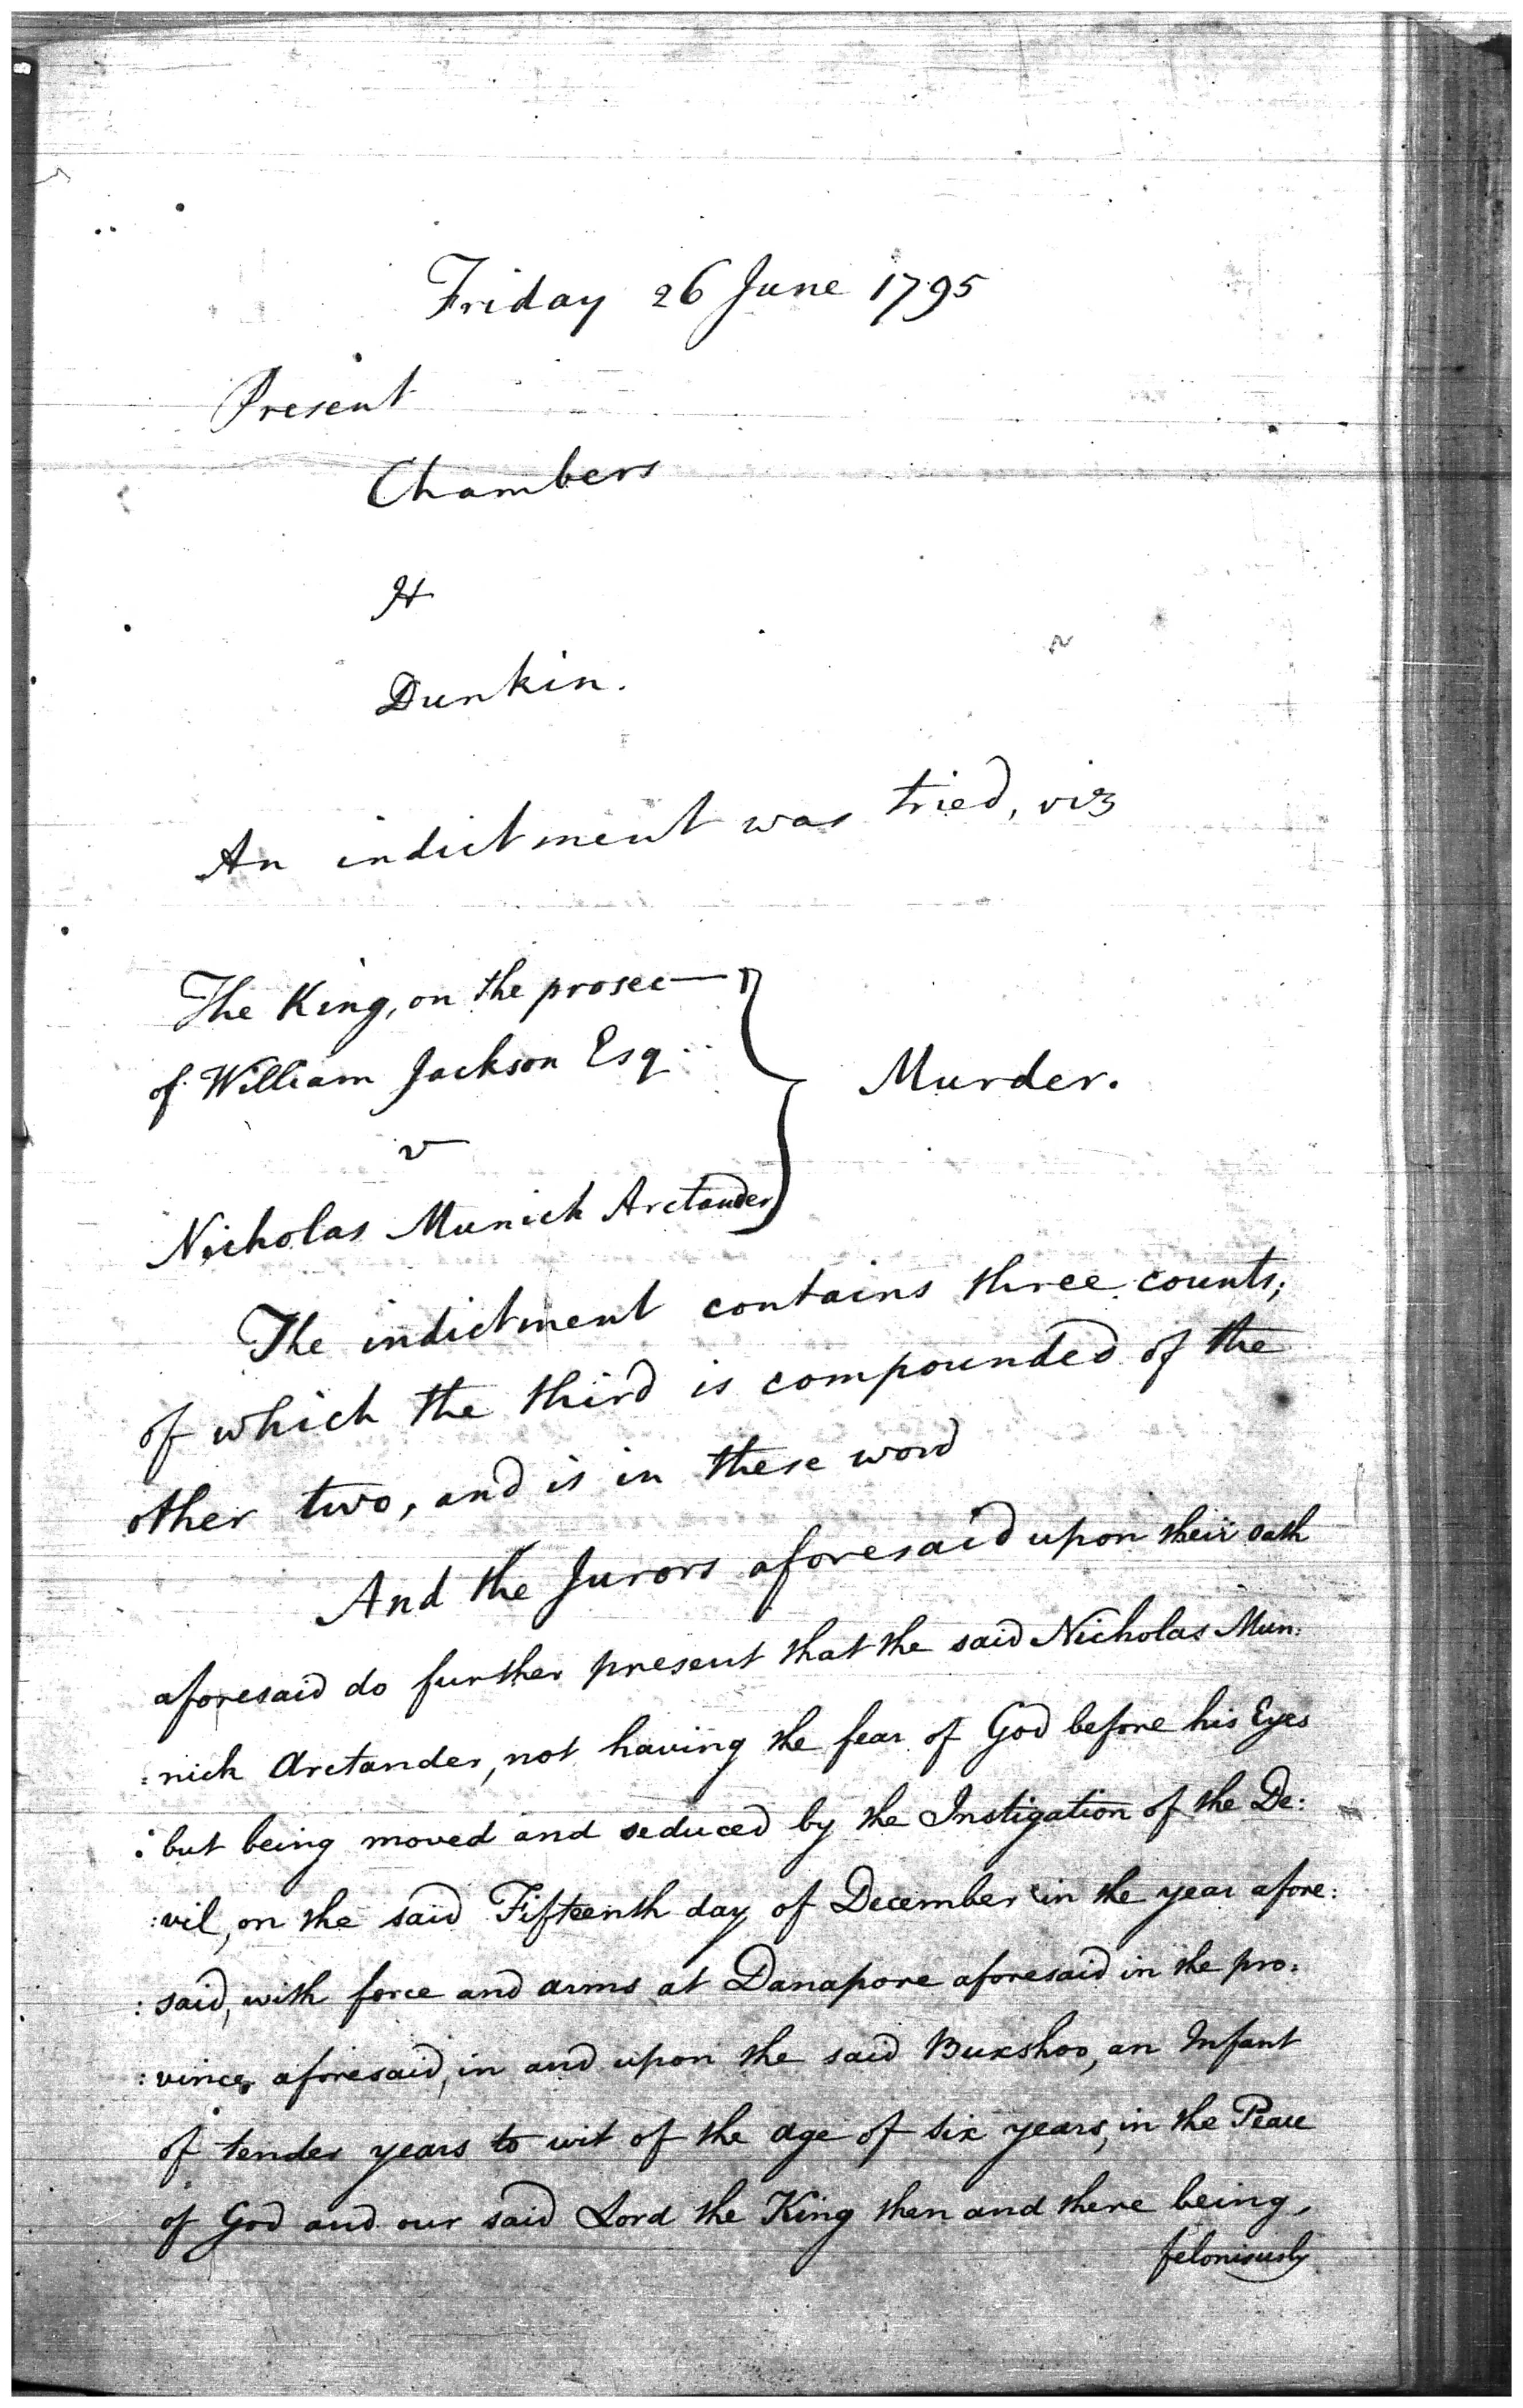 Friday 26 June 1795
Present
Chambers
H
Dunkin.
An indictment was tried, viz
The King, on the prosec—n
of William Jackson Esq
v
Nicholas Munich Arctander
Murder.
The indictment contains three counts;
of which the third is compounded of the
other two, and is in these word
And the Jurors aforesaid upon their oath
aforesaid do further present that the said Nicholas Mun:
:nich Arctander, not having the fear of God before his Eyes
: but being moved and seduced by the Instigation of the De:
:vil, on the said Fifteenth day of December in the year afore:
:said, with force and arms at Danapore aforesaid in the pro:
:vince aforesaid, in and upon the said Buxshoo, an Infant
of tender years to wit of the age of six years, in the Peace
of God and our said Lord the King then and there being,
feloniously